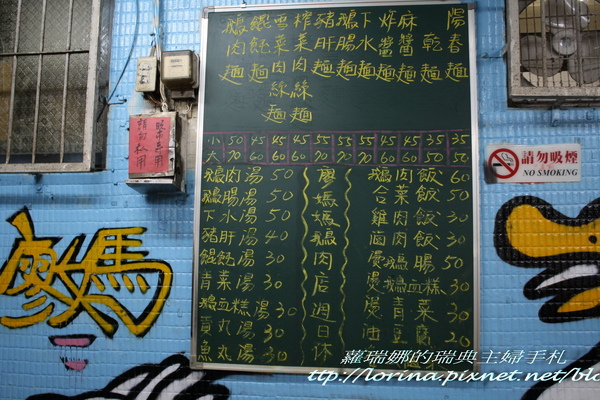 鵝肉麵
餛飩麵
雪菜肉絲麵
榨菜肉絲麵
豬肝麵
鵝腸麵
下水麵
炸醬麵
麻醬麵
乾麵
陽春麵
小 50 45 45 45 55 55 55 45 45 35 35
大 70 60 60 60 70 70 70 60 60 50 50
鵝肉湯 50
鵝腸湯 50
下水湯 50
豬肝湯 40
餛飩湯 30
青菜湯 30
鵝血糕湯 30
貢丸湯 30
魚丸湯 30
廖媽媽鵝肉店週日休
鵝肉飯 60
合菜飯 50
雞肉飯 30
滷肉飯 30
燙鵝腸 50
燙鵝血糕 30
燙青菜 30
油豆腐 20
請勿吸煙
NO SMOKING
廖媽
蘿瑞娜的瑞典主婦手札
http://lorina.pixnet.net/blo